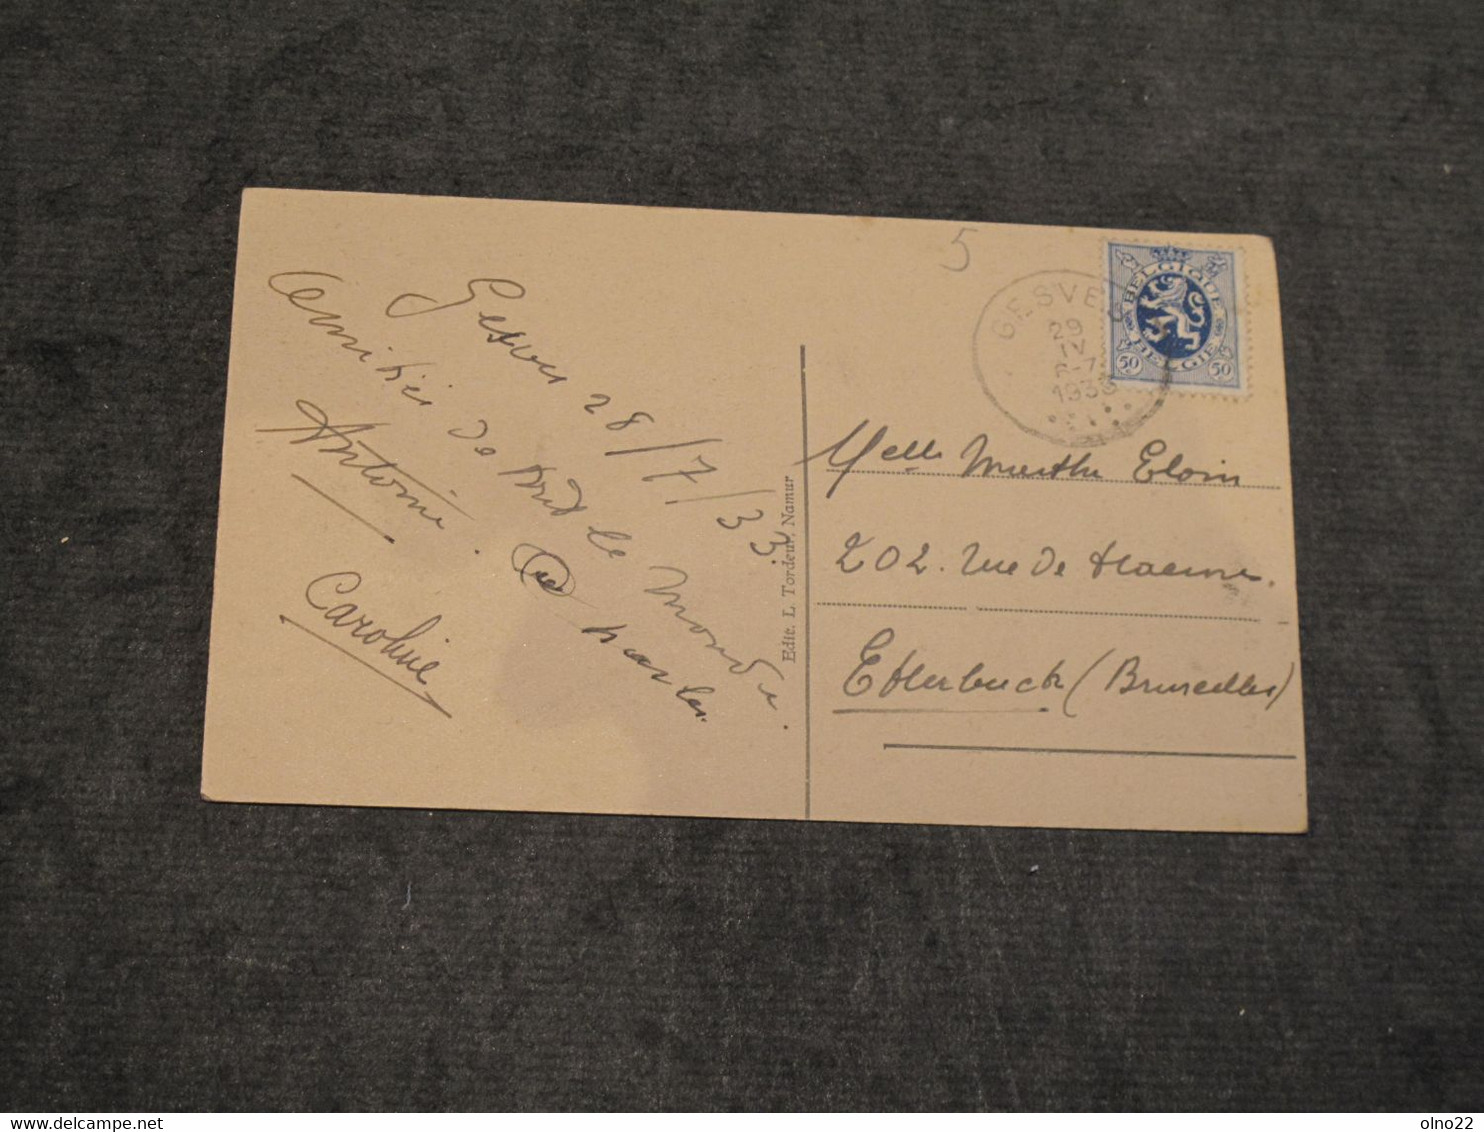 Gesves 28/7/33.
Amitiés de tout le monde.
Antoine.
Charles.
Caroline
Edit. L. Tordeur, Namur
5
GESVES
29
IV
6-7
1933
BELGIQUE
BELGIE
50 50
Melle Marthe Eloin
202. rue de Haerne.
Etterbeeck (Bruxelles)
olno22